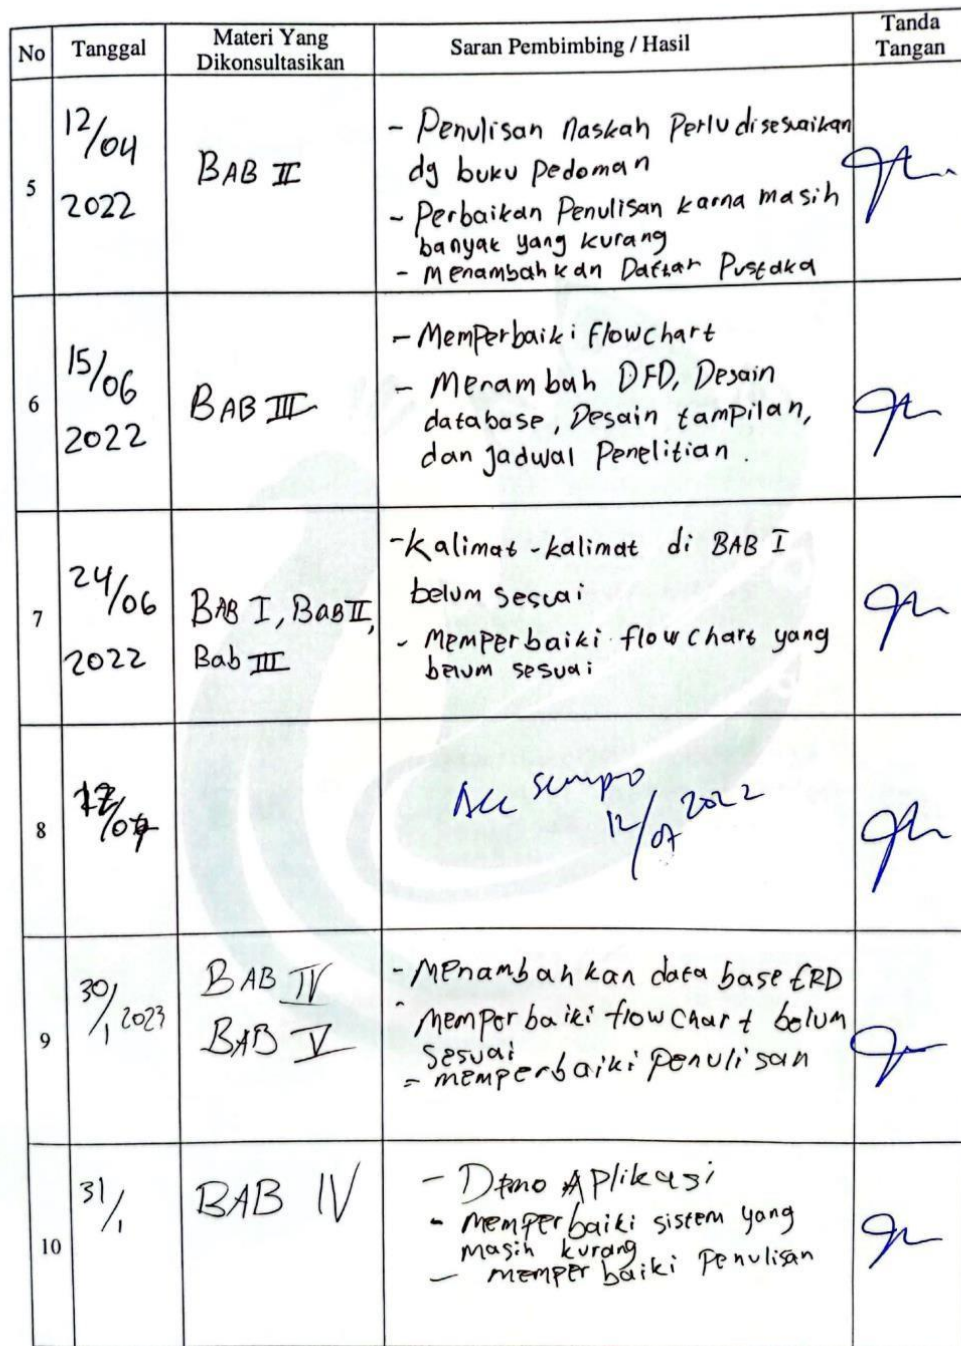 No Tanggal Materi Yang Dikonsultasikan Saran Pembimbing / Hasil Tanda Tangan
5
12/04
2022
BAB II
- Penulisan Naskah Perlu disesuaikan
dg buku Pedoman
- Perbaikan Penulisan karna masih
banyak yang kurang
- Menambahkan Daftar Pustaka
6
15/06
2022
BAB III
- Memperbaiki Flowchart
- Menambah DFD, Desain
database, Desain tampilan,
dan Jadwal Penelitian.
7
24/06
2022
BAB I, BAB II,
Bab III
- Kalimat-kalimat di BAB I
belum sesuai
- Memperbaiki flowchart yang
belum sesuai
8
Acc sempro
12/07 2022
9
30/1 2023
BAB IV
BAB V
- Menambahkan data base ERD
- Memperbaiki flowchart belum
sesuai
- memperbaiki Penulisan
10
31/1
BAB IV
- Demo Aplikasi
- memperbaiki sistem yang
masih kurang
- memperbaiki Penulisan